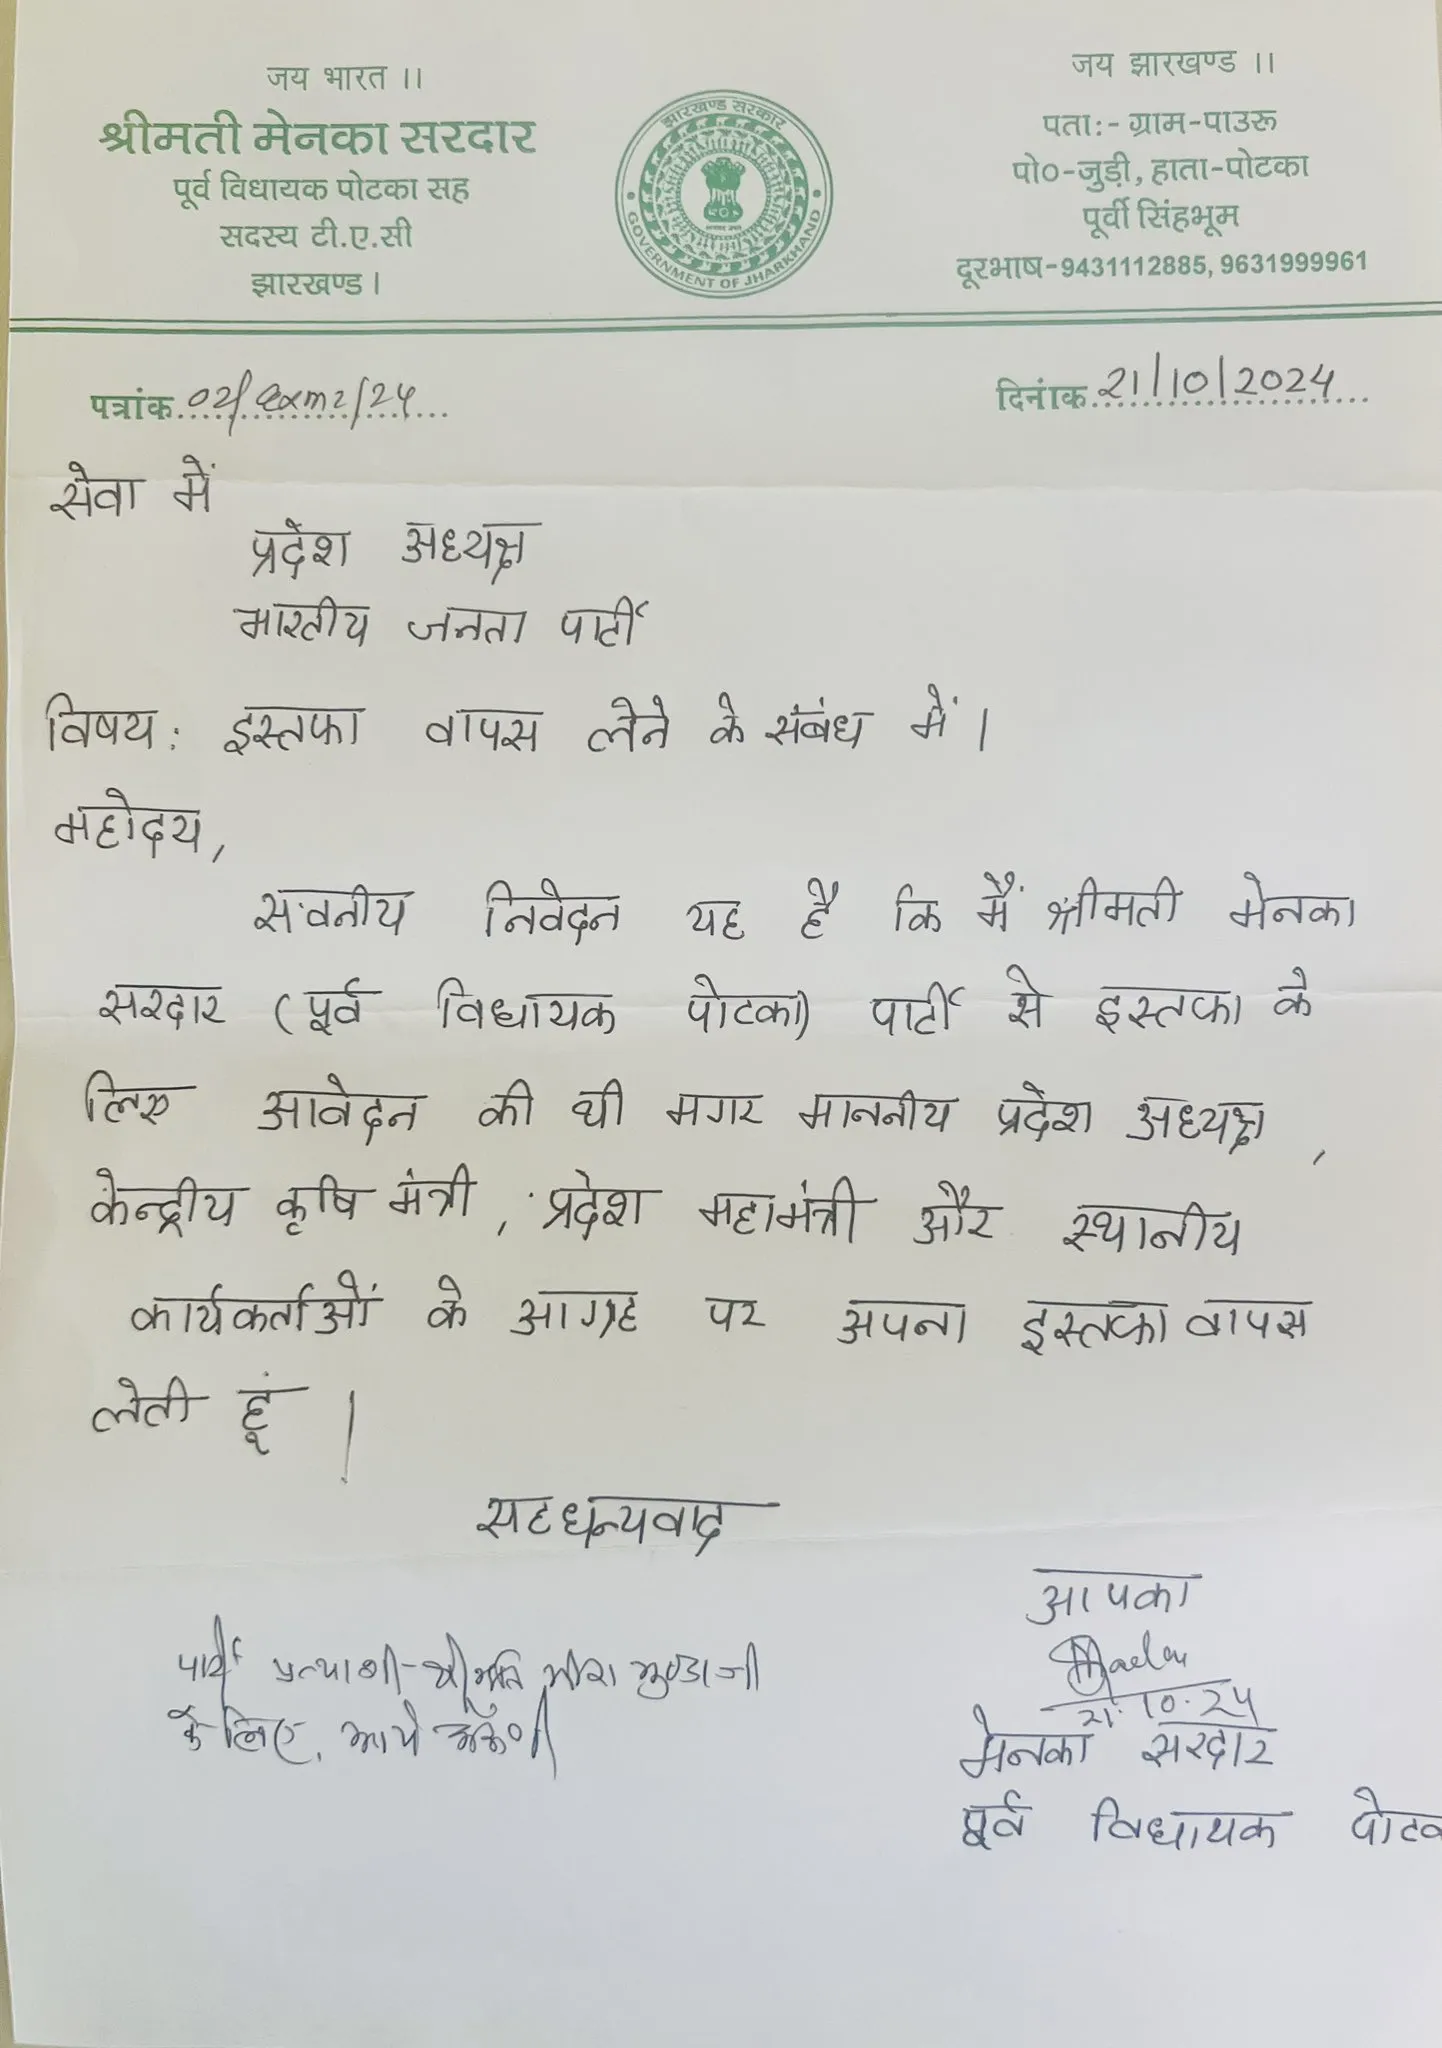 जय भारत ।।
श्रीमती मेनका सरदार
पूर्व विधायक पोटका सह
सदस्य टी.ए.सी
झारखण्ड।
झारखण्ड सरकार
GOVERNMENT OF JHARKHAND
जय झारखण्ड ।।
पता:- ग्राम-पाउरू
पो०-जुड़ी, हाता-पोटका
पूर्वी सिंहभूम
दूरभाष-9431112885, 9631999961
पत्रांक 02/ /24
दिनांक 21/10/2024
सेवा में
प्रदेश अध्यक्ष
भारतीय जनता पार्टी
विषय: इस्तफा वापस लेने के संबंध में।
महोदय,
सवनीय निवेदन यह है कि मैं श्रीमती मेनका
सरदार (पूर्व विधायक पोटका) पार्टी से इस्तफा के
लिए आवेदन की थी मगर माननीय प्रदेश अध्यक्ष,
केन्द्रीय कृषि मंत्री, प्रदेश महामंत्री और स्थानीय
कार्यकर्ताओं के आग्रह पर अपना इस्तफा वापस
लेती हूं।
सहधन्यवाद
पार्टी प्रत्याशी-श्रीमति मीरा मुण्डा जी
के लिए,
आपका
21.10.24
मेनका सरदार
पूर्व विधायक